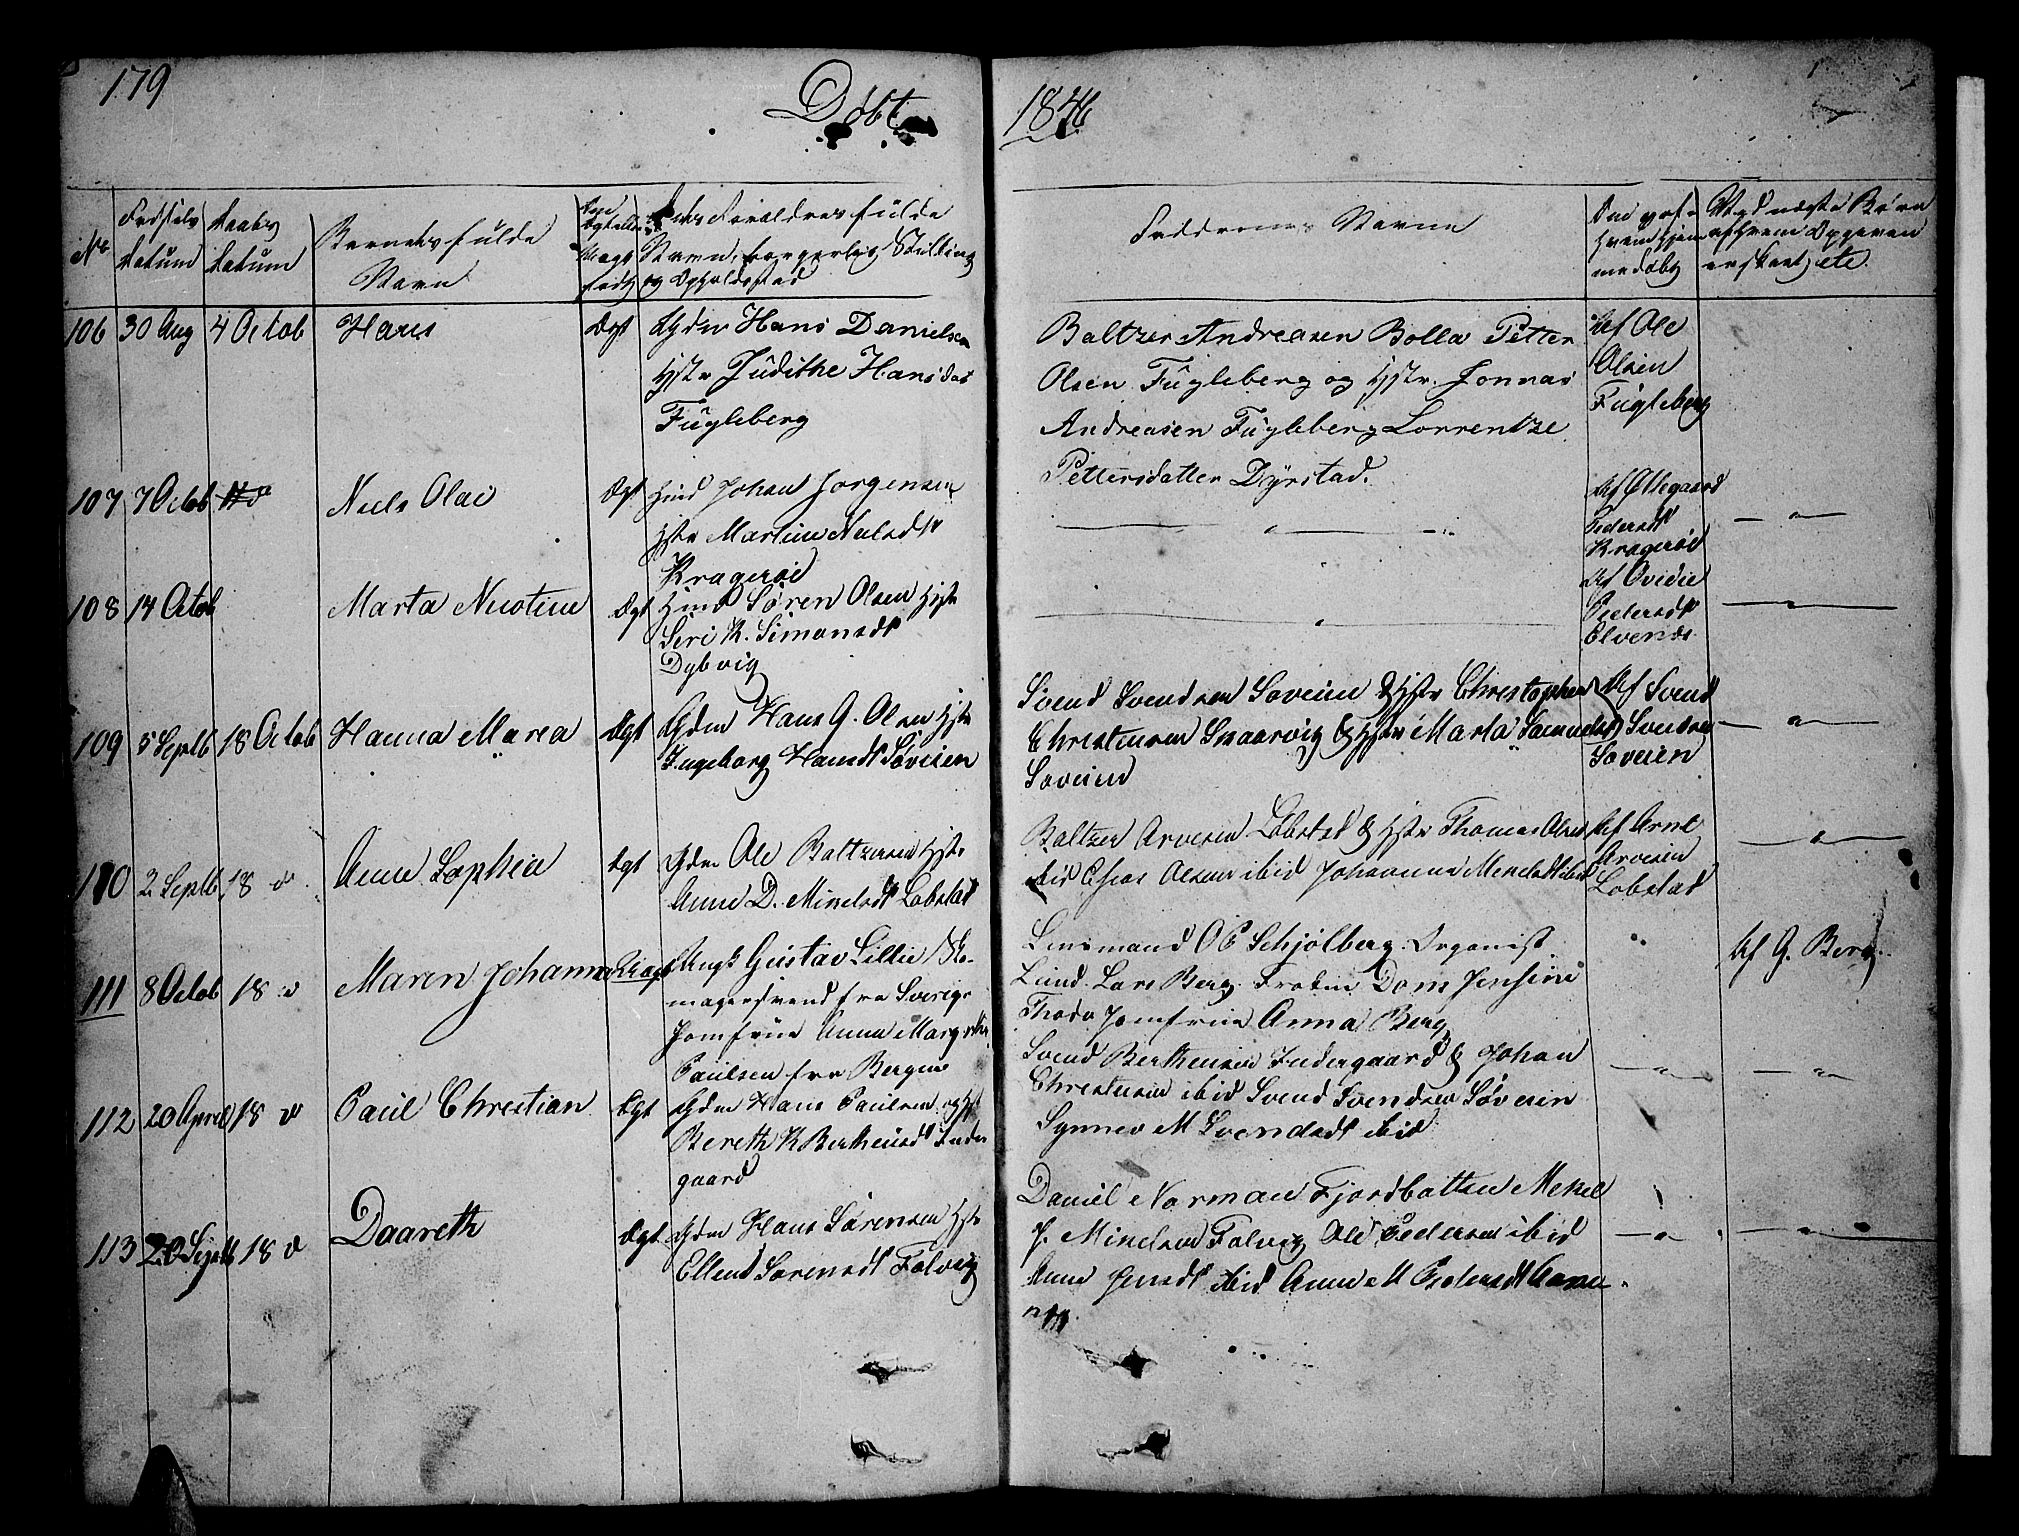 179
Døbte
1846
No
Fødsels
datum
Daabs
datum
Barnets fulde
Navn
Om
Ægte eller
Uægte
født
Dets Forældres fulde
Navn, borgerlig Stilling
og Opholdssted
Faddernes Navne
Om og af
hvem hjem
medøbt
Ved uægte Børn
af hvem Opgaven
er skeet, etc.
106 30 Aug 4 Octob Hans Ægt Gdm Hans Danielsen
Hstr Judithe Hansdat
Fugleberg
Baltzer Andreasen Bolla Petter
Olsen Fugleberg og Hstr. Jonnas
Andreasen Fugleberg Lorrentze
Pettersdatter Dyrstad.
Af Ole
Olsen
Fugleberg
107 7 Octob Niels Olai Ægt Hmd Johan Jorgensen
Hstr Martine Nielsdt
Kragerød
Af Ollegaard
Pedersdt
Kragerød
108 14 Octob Marta Nicoline Ægt Hmd Søren Olsen Hstr
Siri K. Simonsdt
Dybvig
Af Ovidie
Pedersdt
Elvenæs
109 5 Septb 18 Octob Hanna Maria Ægt Gdm Hans G. Olsen Hstr
Ingeborg Hansdt Søveien
Svend Svendsen Soveien & Hstr Christopher
Christensen Snaarvig & Hstr Marta
Soveien
Af Svend
Svendsen
Soveien
110 2 Septb 18 d Anne Sophia Ægt Gdm Ole Baltzersen Hstr
Anne D. Mikelsdt Løbstad
Baltzer Arvesen Løbstad & Hstr Thomas Olsen
ibid Olsen ibid Johanna Mikelsdt ibid
Af Arnt
Arvesen
Løbstad
111 8 Octob 18 d Maren Johanna Uægt Ungk Gustav Lillie Sko-
magersvend fra Sverige
Jomfrue Anna Margrethe
Paulsen fra Bergen
Lensmand O P Schjølberg. Organist
Lund. Lars Berg. Frøken Dom Jensine
Jomfrue Anna Berg
Af G. Berg
112 20 April 18 d Paul Christian Ægt Gdm Hans Paulsen og Hst
Bereth K Berthensdt Inder
gaard
Svend Berthensen Indergaard & Johan
Christensen ibid Svend Svendsen Søveien
Synnev M Svendsdt ibid
113 20 Septb 18 d Daareth Ægt Gdm Hans Sørensen Hstr
Ellen Sorensdt Falvig
Daniel Norman Fjordbotten Mekel
J. Mikelsen Falvig Ole Pedersen ibid
Anne Jensdt ibid Anne M Pedersdt